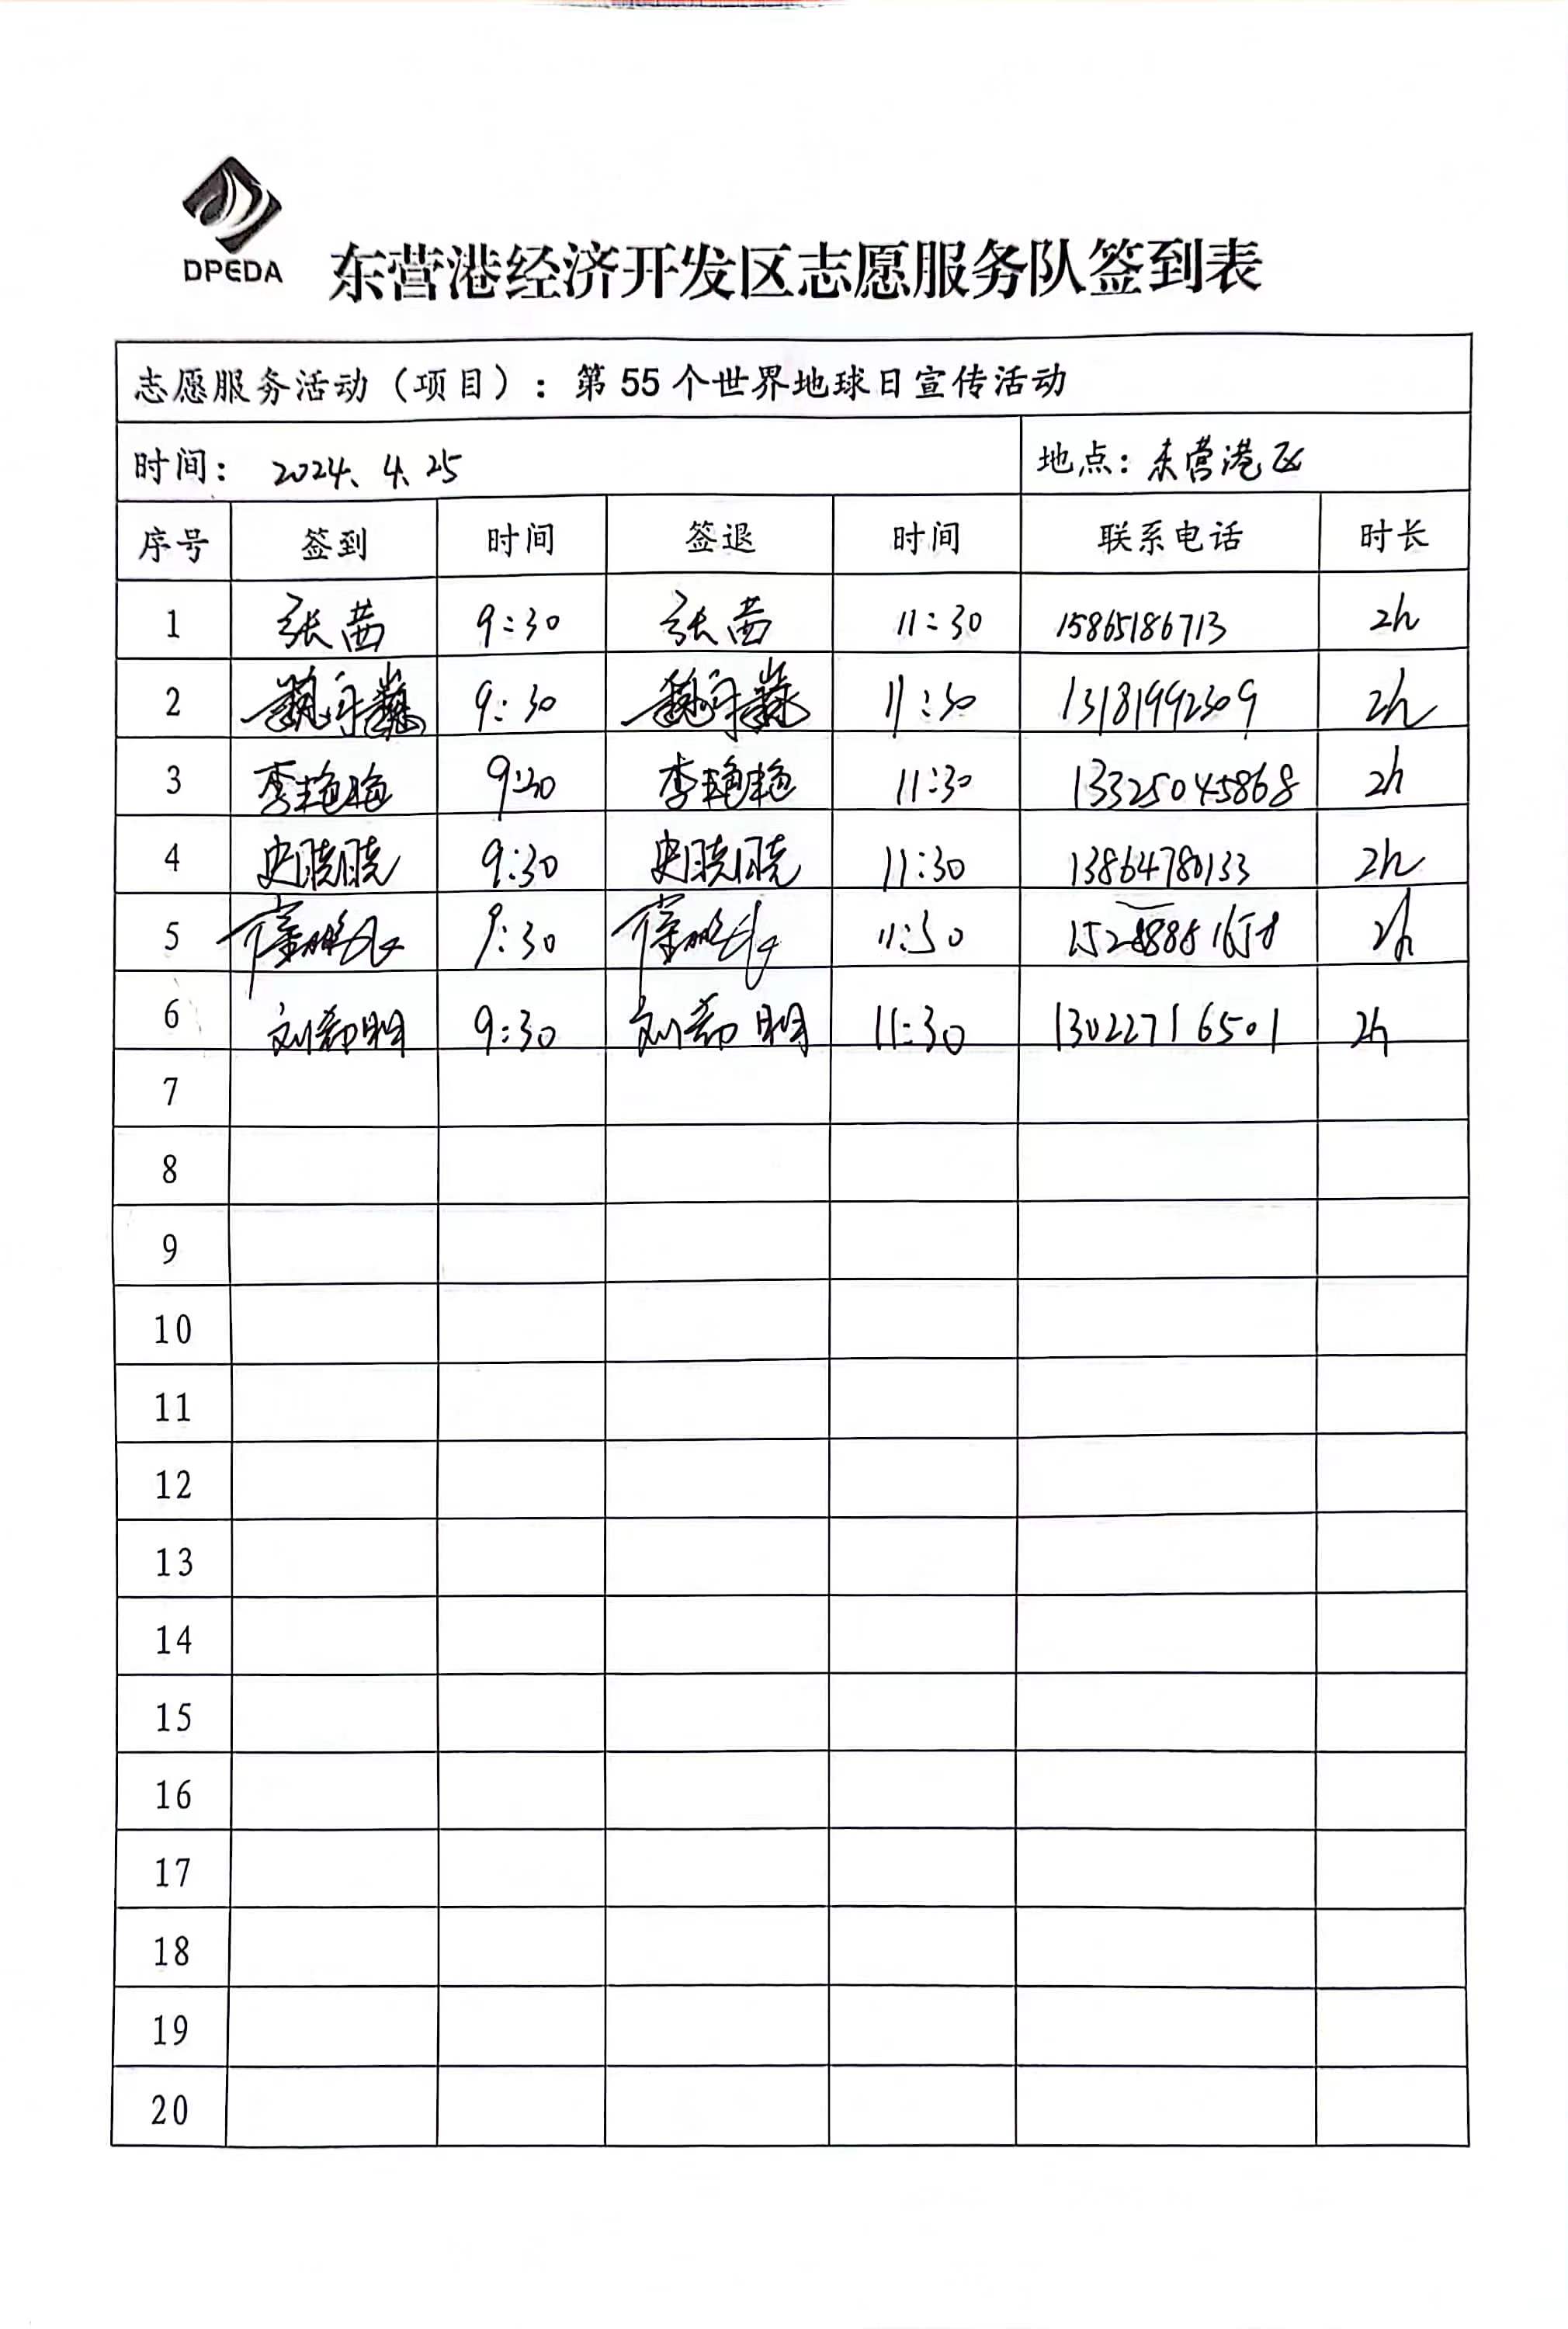 DPEDA
东营港经济开发区志愿服务队签到表
志愿服务活动（项目）：第 55 个世界地球日宣传活动
时间： 2024.4.25 地点：东营港区
序号 签到 时间 签退 时间 联系电话 时长
1 张茜 9:30 张茜 11:30 15865186713 2h
2 9:30 11:30 13181992309 2h
3 李艳艳 9:30 李艳艳 11:30 13325045868 2h
4 史晓晓 9:30 史晓晓 11:30 13864780133 2h
5 9:30 11:30 2h
6 刘希明 9:30 刘希明 11:30 13022716501 2h
7
8
9
10
11
12
13
14
15
16
17
18
19
20